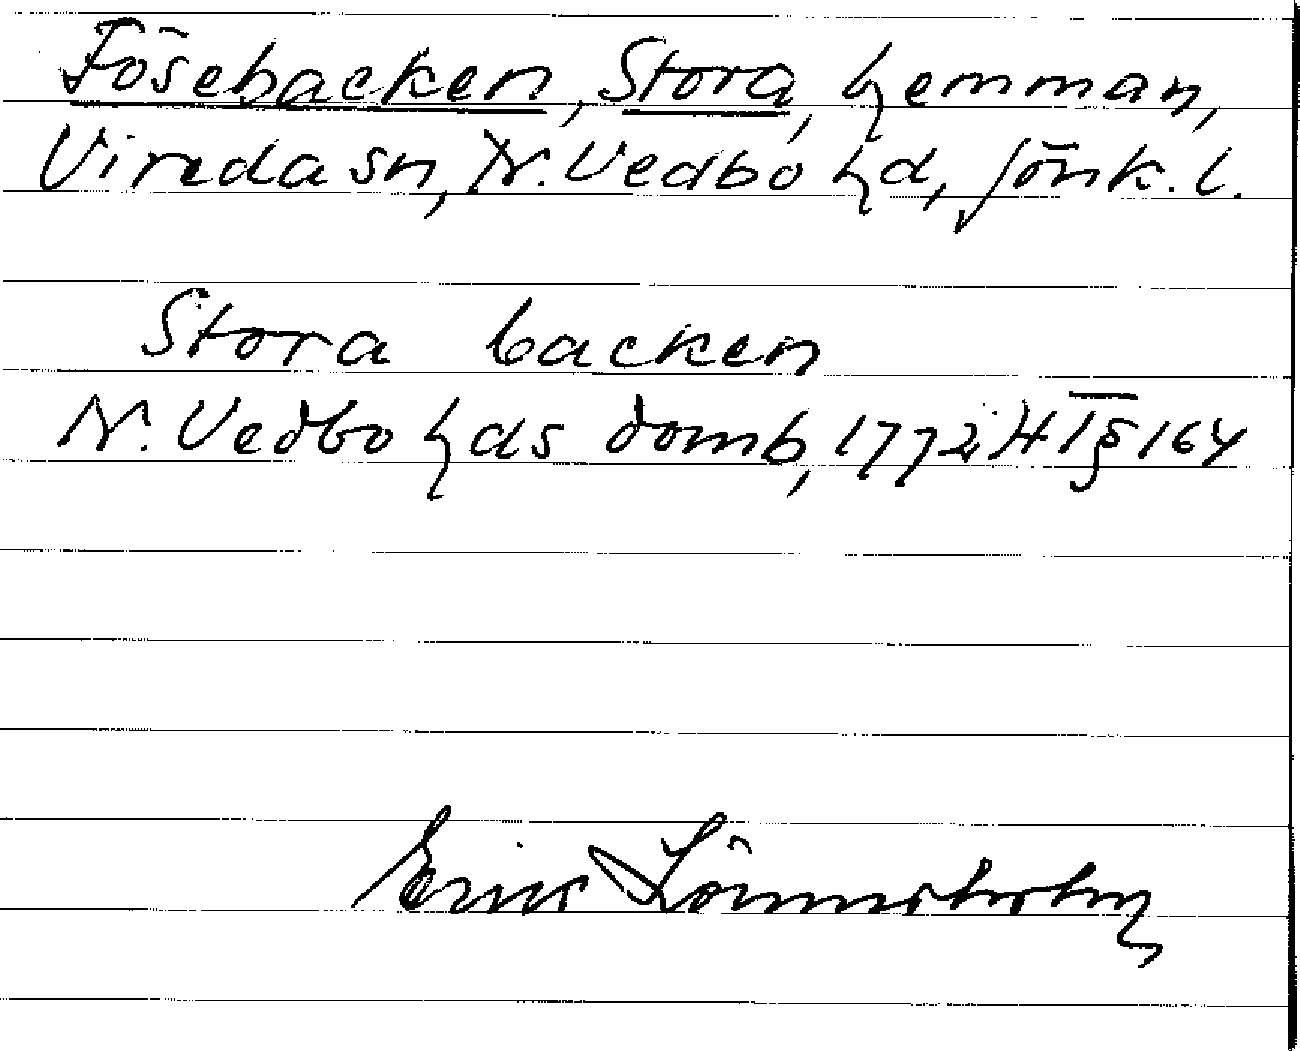 Fösebacken, Stora, hemman,
Vireda sn, N. Vedbo hd, Jönk. l.
Stora backen
N. Vedbo hds domb, 1772 H I § 164
Eric Lönnerholm